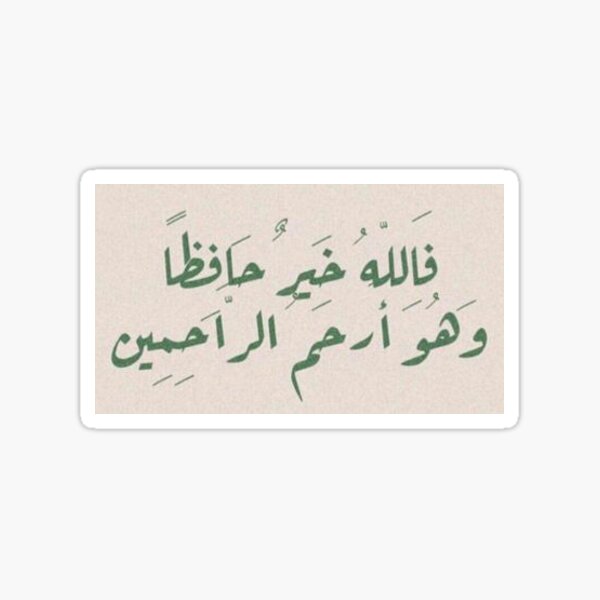 فَاللَّهُ خَيرٌ حَافِظاً
وَهُوَ أرحَمُ الرَّاحَمِِين